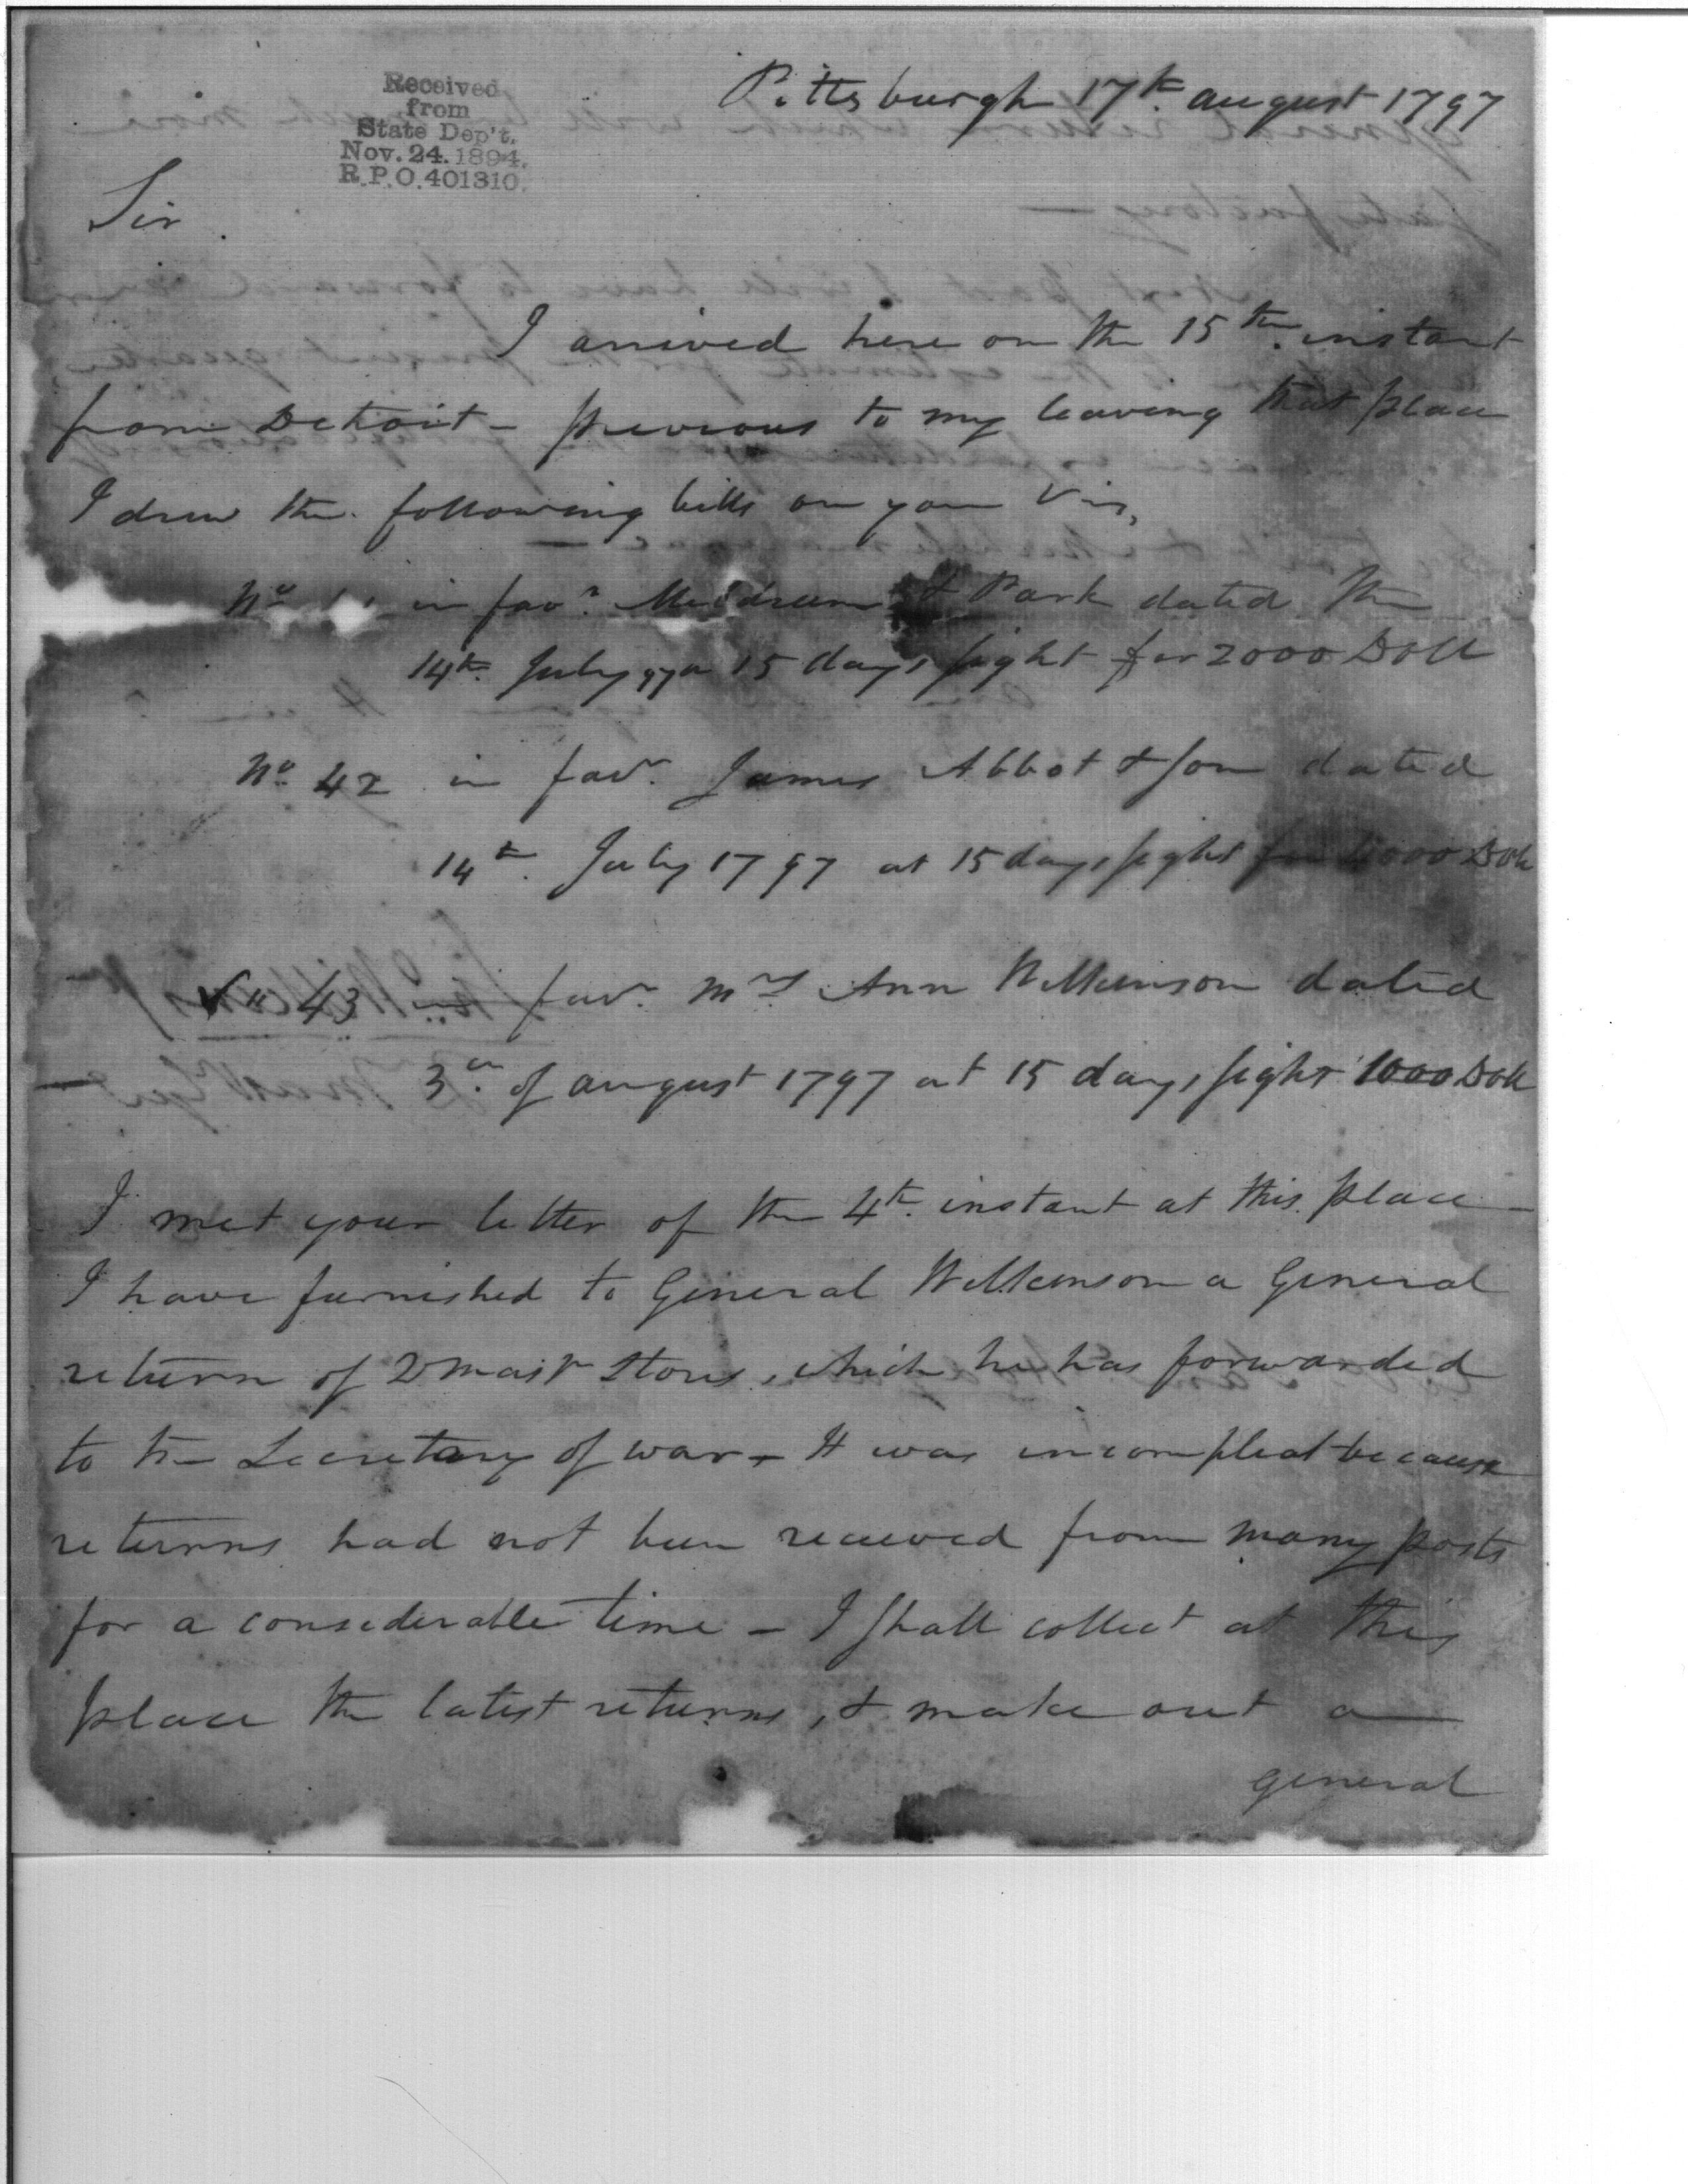 Pittsburgh 17th. august 1797
Received
from
State Dep't.
Nov. 24. 1894.
R.P.O. 401310.
Sir
I arrived here on the 15th. instant
from Detroit - previous to my leaving that place
I drew the following bills on you Viz,
No in favr. Meldrum & Park dated the
14th. July 97 a 15 days sight for 2000 Doll
No 42 in favr. James Abbot & Son dated
14th. July 1797 at 15 days sight 000 Doll
" 43 in favr. Mrs Ann Wilkinson dated
3d. of august 1797 at 15 days sight 1000 Doll
I met your letter of the 4th. instant at this place -
I have furnished to General Wilkinson a General
return of Qmastr Stores, which he has forwarded
to the Secretary of war - It was incompleat because
returns had not been received from many posts
for a considerable time - I shall collect at this
place the latest returns, & make out a
general